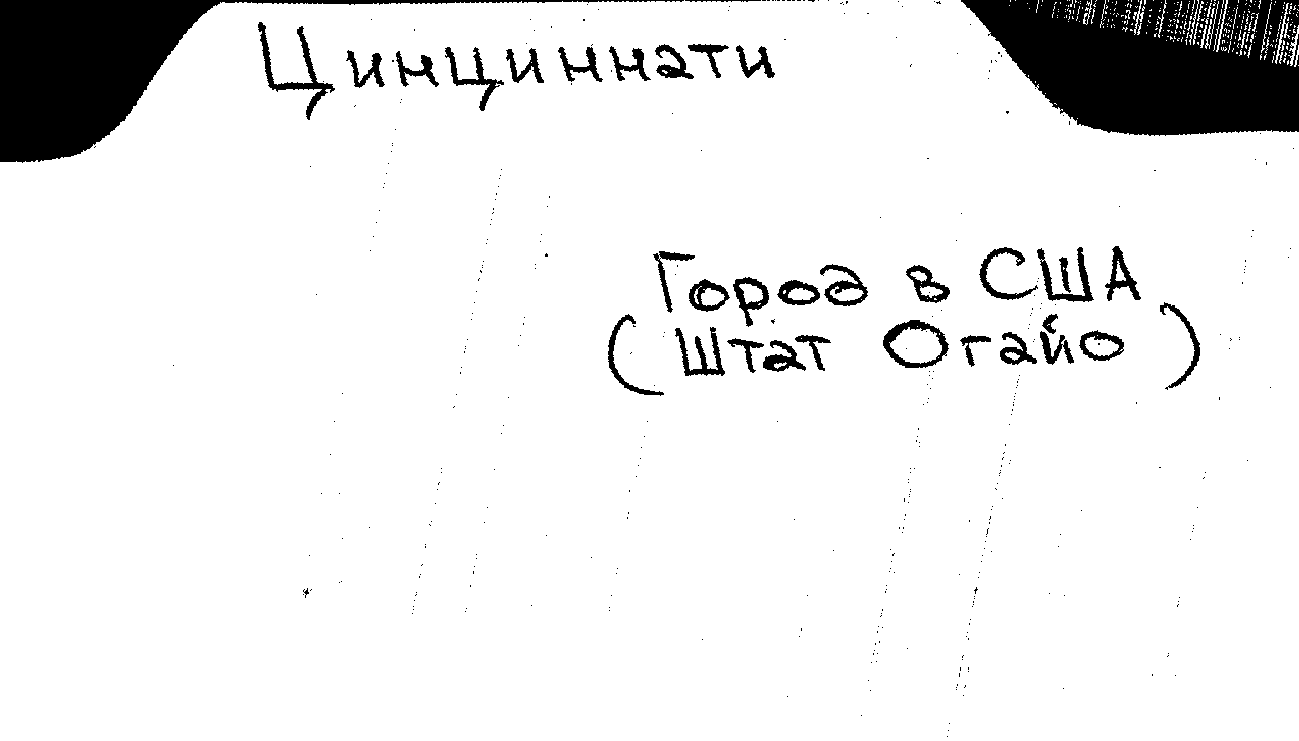 Цинциннати
Город в США
(Штат Огайо)